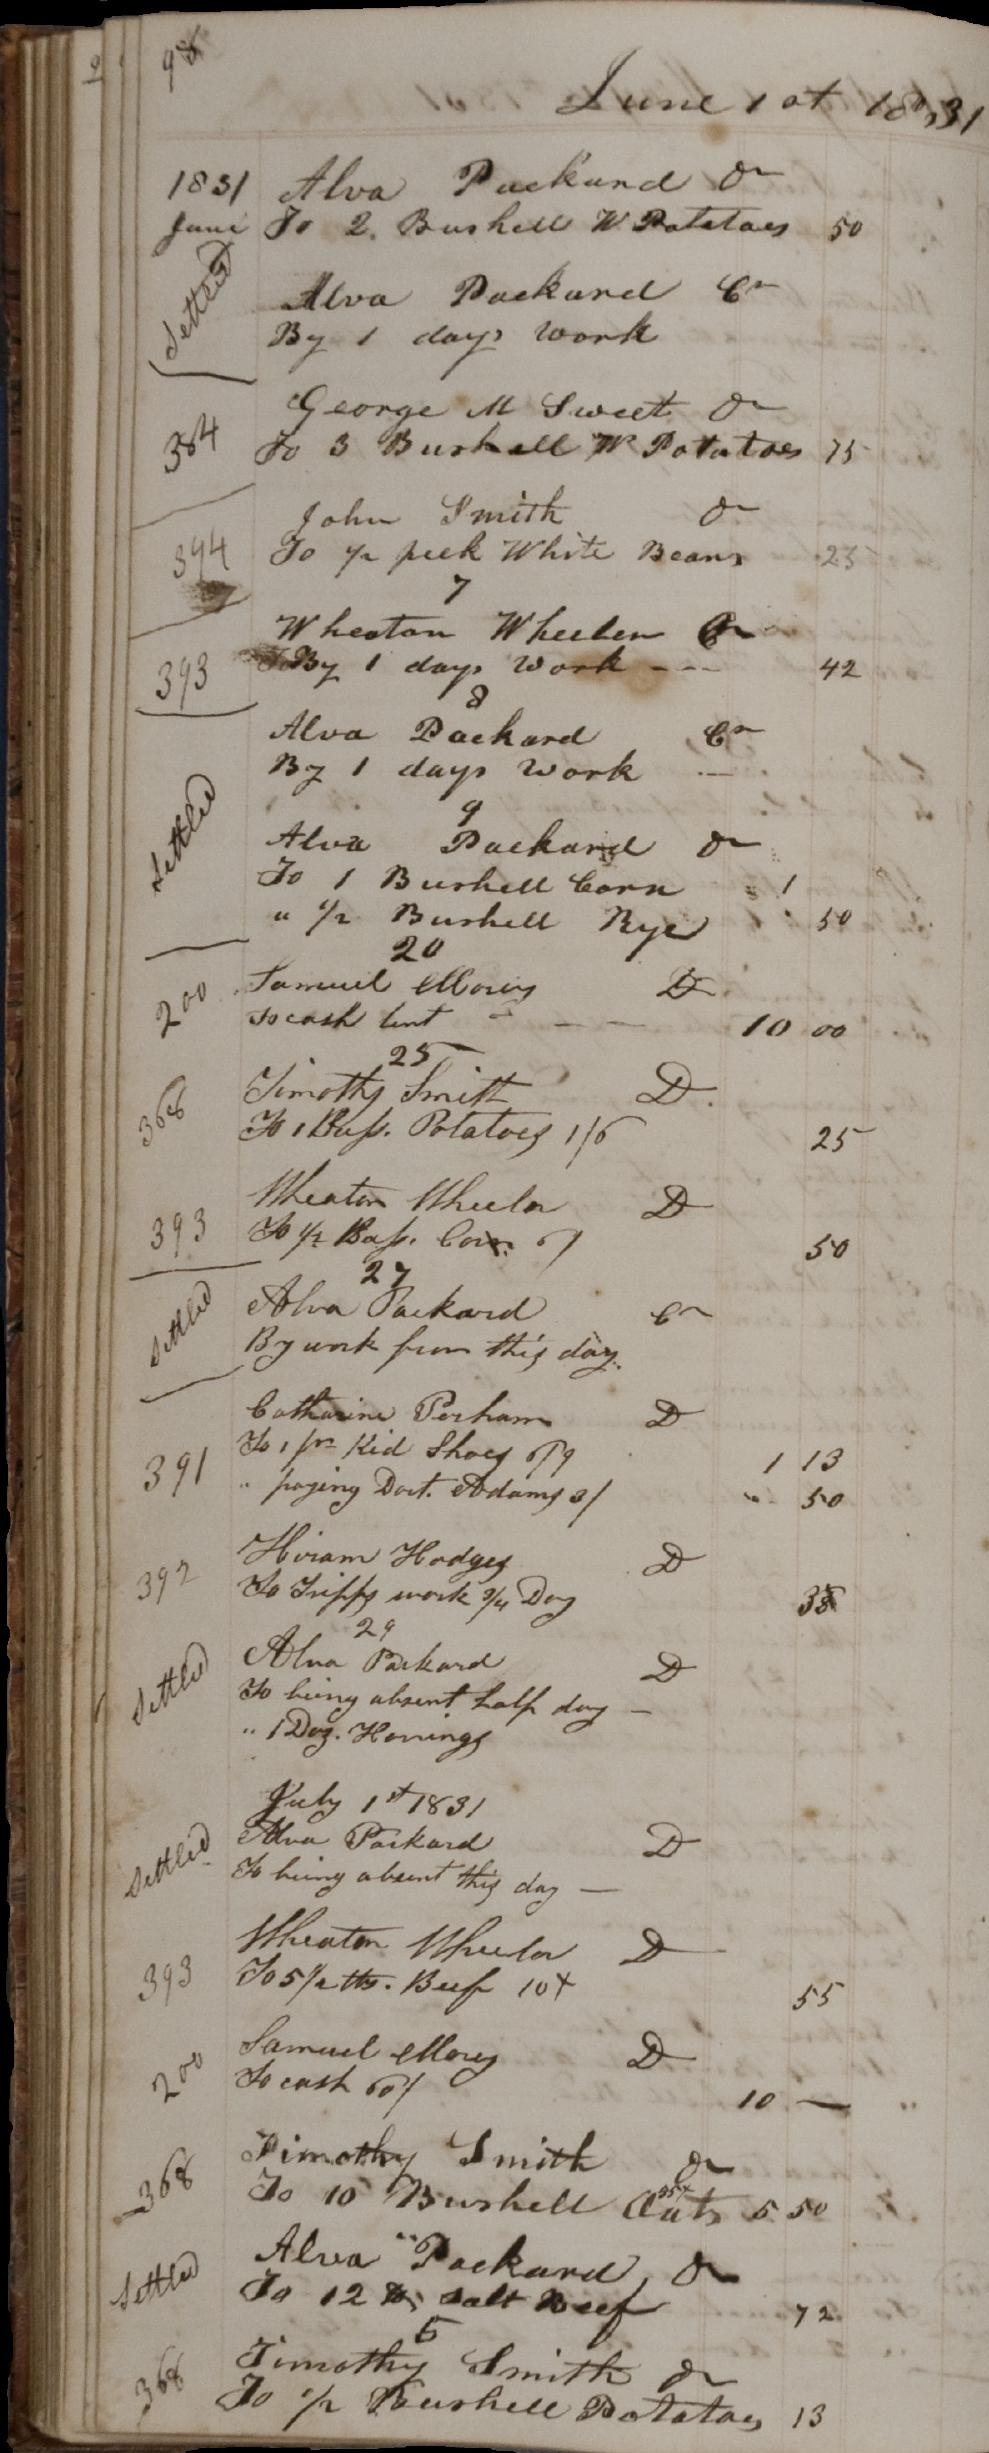 98
June 1st 1831
1831 Alva Packard Dr
June To 2 Bushell W Potatoes 50
Settled
Alva Packard Cr
By 1 days work
George M Sweet Dr
384 To 3 Bushell W Potatoes 75
John Smith Dr
394 To 1/2 peek White Beans 25
7
Wheaton Wheeler Cr
393 By 1 days work --- 42
8
Alva Packard Cr
By 1 days work
Settled
9
Alva Packard Dr
To 1 Bushell Corn 1
" 1/2 Bushell Rye 50
20
200 Samuel Morey D
To cash lent 10 00
25
368 Timothy Smith D.
To 1 Bush. Potatoes 1/6 25
Wheaton Wheeler D
393 To 1/2 Bush. Corn 6/ 50
27
Settled Alva Packard Cr
By work from this day.
Catharine Perham D
391 To 1 pr Kid Shoes 6/9 1 13
" paying Doct. Adams 3/ " 50
392 Hiram Hodges D
To Tripps work 3/4 Day 38
29
Settled Alva Packard D
To being absent half day —
" 1 Doz. Herrings
July 1st 1831
Settled Alva Packard D
To being absent this day —
Wheaton Wheeler D
393 To 5 1/2 lbs. Beef 10x 55
200 Samuel Morey D
To cash 60/ 10 —
Timothy Smith Dr
368 To 10 Bushell Oats 5 50
Alva Packard Dr
Settled To 12 lbs salt Beef 72
5
Timothy Smith Dr
368 To 1/2 Bushell Potatoes 13